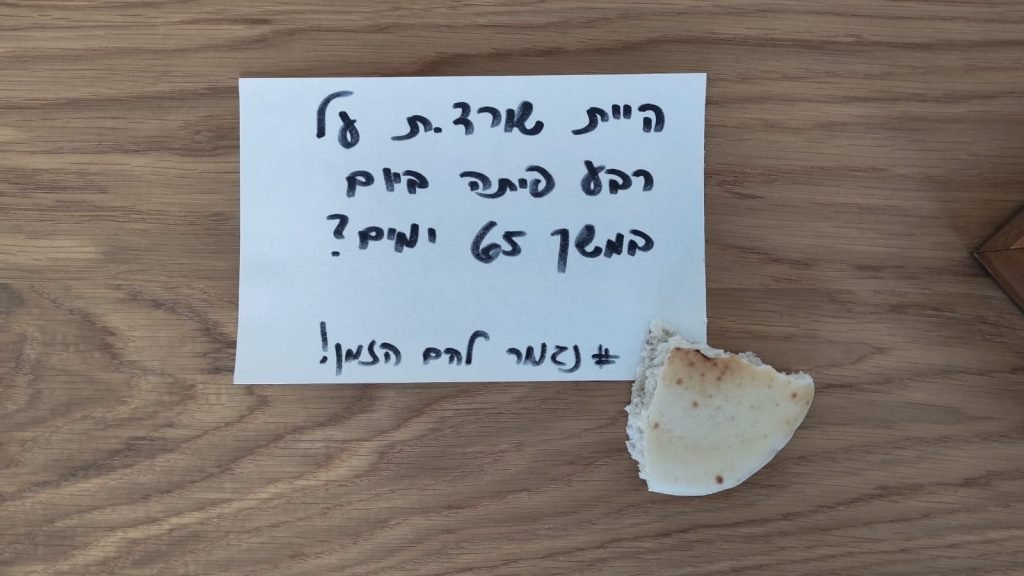 היית שורד.ת על
רבע פיתה ביום
במשך 65 ימים?
# נגמר להם הזמן!